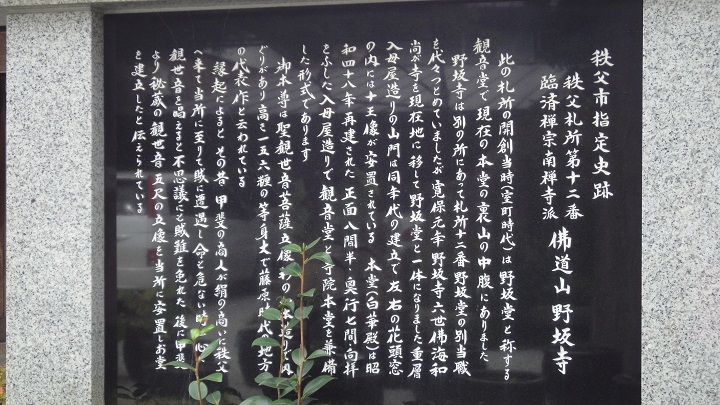 秩父市指定史跡
秩父札所第十二番
臨済禅宗南禅寺派
佛道山野坂寺
此の札所の開創当時(室町時代)は野坂堂と称する
観音堂で現在の本堂の裏山の中腹にありました
野坂寺は別の所にあって札所十二番野坂堂の別当職
を代々つとめていましたが寛保元年野坂寺六世佛海和
尚が寺を現在地に移して野坂堂と一体になりました重層
入母屋造りの山門は同年代の建立で左右の花頭窓
の内には十王像が安置されている 本堂(白華殿)は昭
和四十八年再建された 正面八間半・奥行七間・向拝
をふした入母屋造りで観音堂と寺院本堂を兼備
した形式であります
御本尊は聖観世音菩薩立像 木造で丸
どりがあり高さ一五六糎の等身大で藤原時代の地方
の代表作と云われている
縁起によるとその昔甲斐の商人が絹の商いに秩父
へ来て当所に至りて賊に遭遇し命も危ない時 心
観世音を唱えると不思議にも賊難を免れた 後 甲斐
より秘蔵の観世音五尺の立像を当所に安置しお堂
を建立したと伝えられている